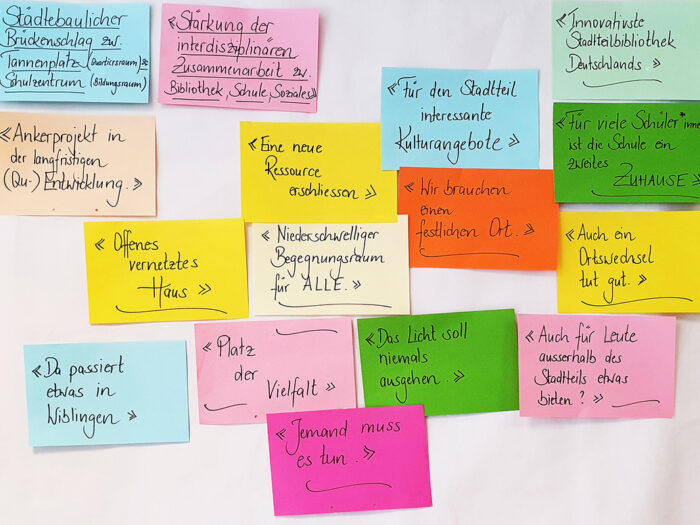 Städtebaulicher
Brückenschlag zw.
Tannenplatz (Quartiersraum) &
Schulzentrum (Bildungsraum)
«Stärkung der
interdisziplinären
Zusammenarbeit zw.
Bibliothek, Schule, Soziales»
«Innovativste
Stadtteilbibliothek
Deutschlands.»
«Für den Stadtteil
interessante
Kulturangebote»
«Ankerprojekt in
der langfristigen
(Qu-) Entwicklung.»
«Eine neue
Ressource
erschliessen»
«Für viele Schüler*innen
ist die Schule ein
zweites
ZUHAUSE»
«Wir brauchen
einen
festlichen Ort.»
«Offenes
vernetztes
Haus»
«Niederschwelliger
Begegnungsraum
für ALLE.»
«Auch ein
Ortswechsel
tut gut.»
«Da passiert
etwas in
Wiblingen»
«Platz
der
Vielfalt»
«Das Licht soll
niemals
ausgehen.»
«Auch für Leute
ausserhalb des
Stadtteils etwas
bieten?»
«Jemand muss
es tun.»